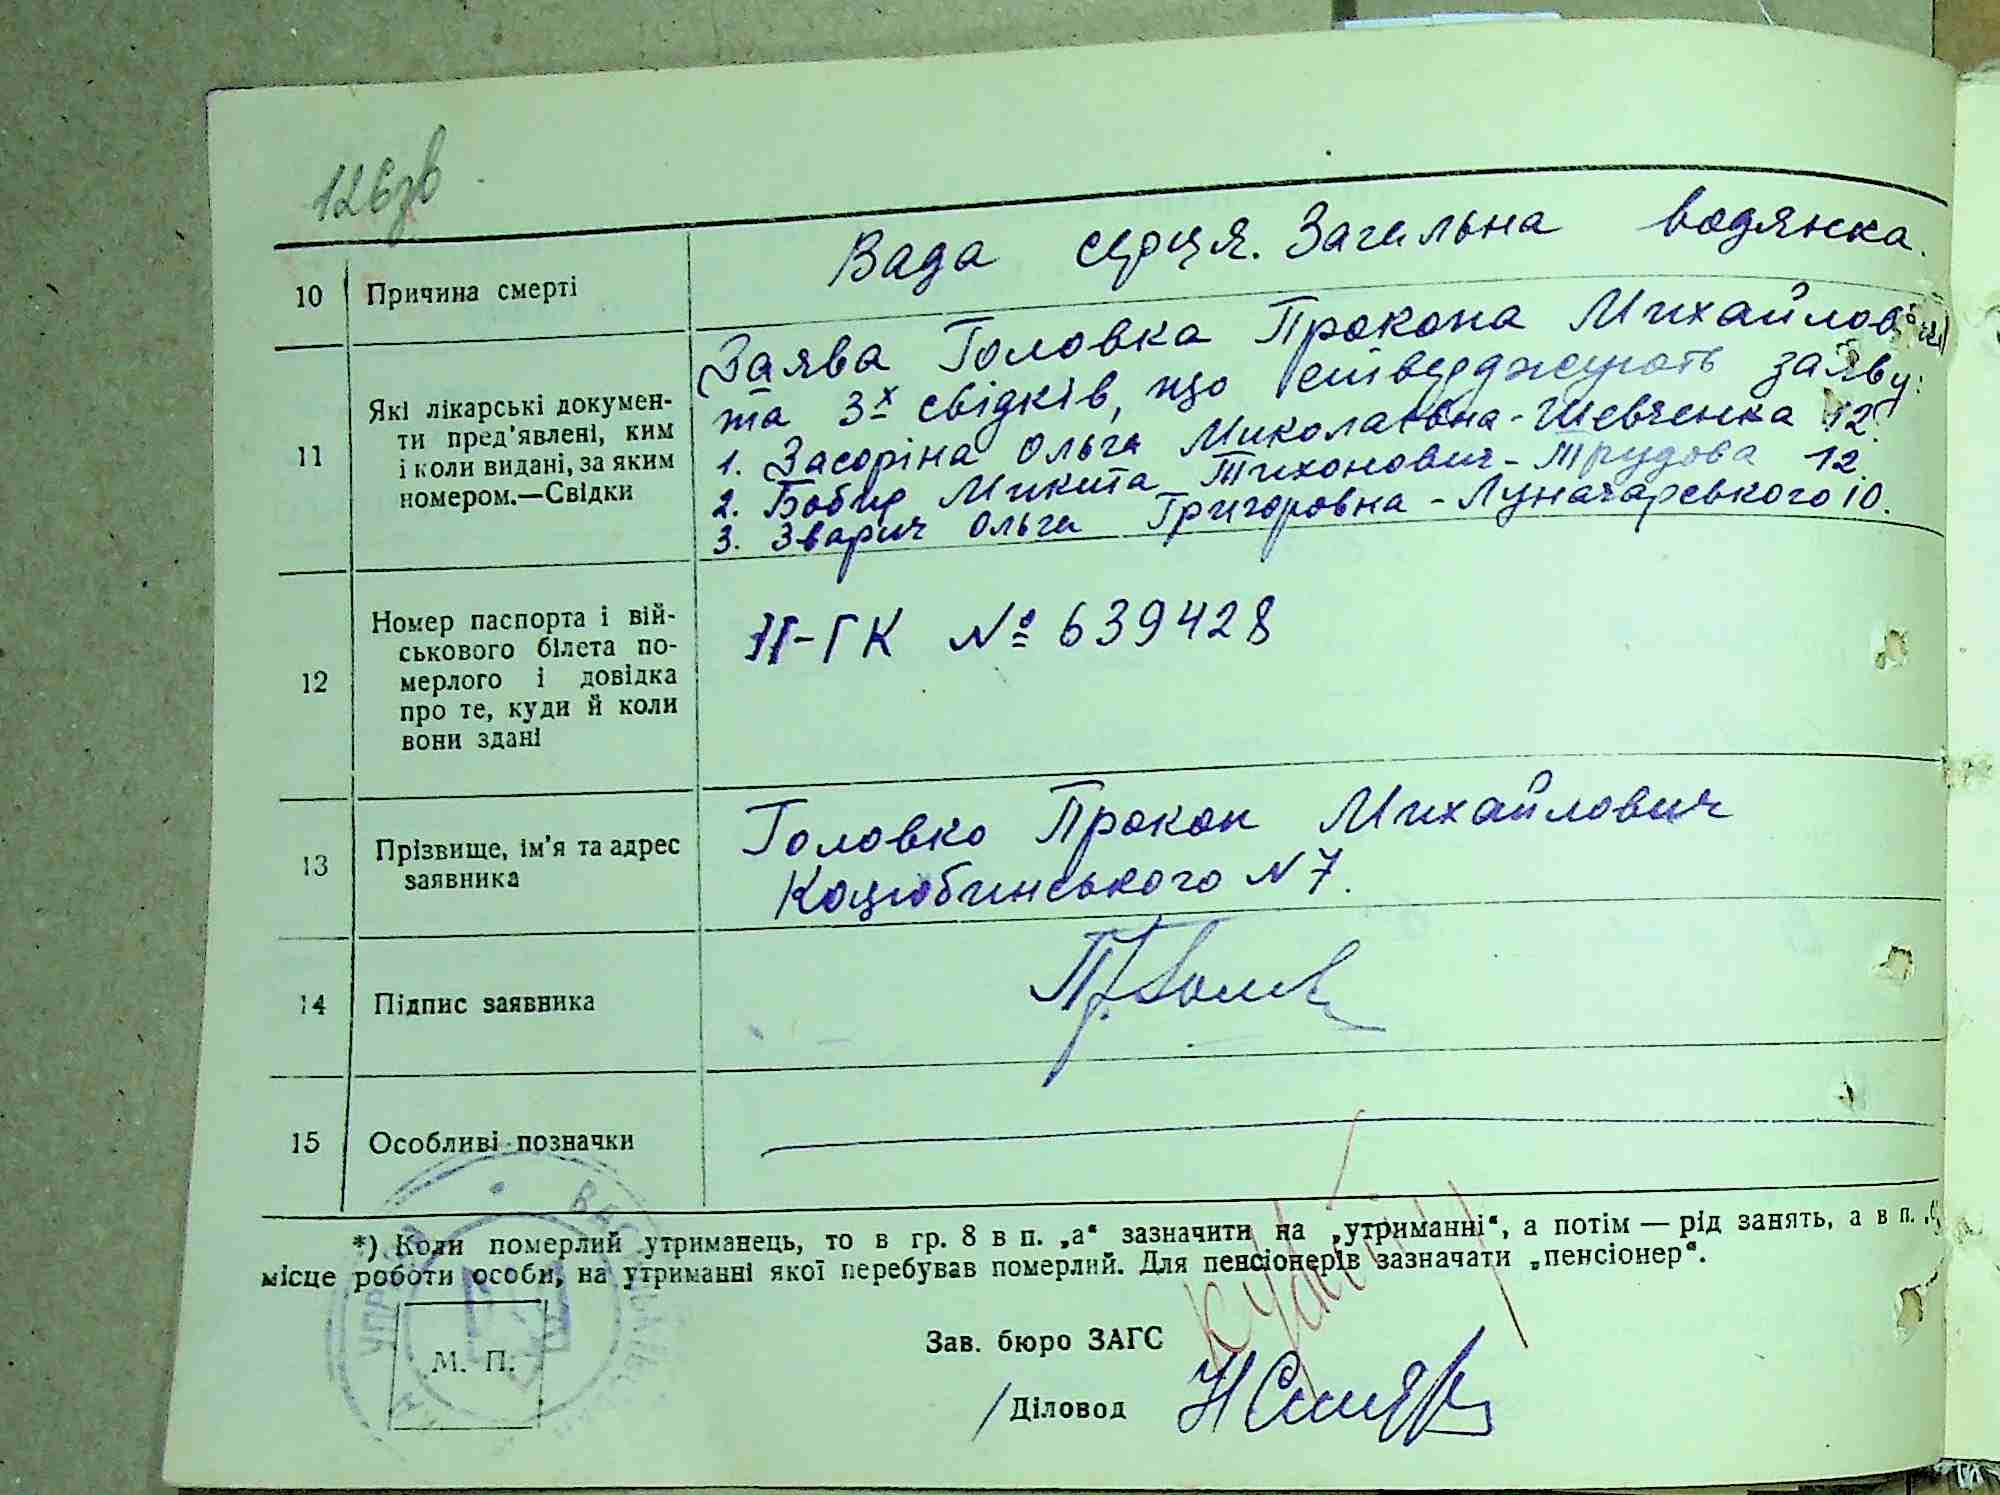 126зв
10 Причина смерті
Вада серця. Загальна водянка.
11 Які лікарські докумен-
ти пред'явлені, ким
і коли видані, за яким
номером.—Свідки
Заява Головка Прокопа Михайловича
та 3х свідків, що стверджують заяву:
1. Засоріна Ольга Миколаївна - Шевченка 12.
2. Микита Тихонович - Трудова 12.
3. Зварич Ольга Григоровна - Луначарського 10.
12 Номер паспорта і вій-
ськового білета по-
мерлого і довідка
про те, куди й коли
вони здані
ГК № 639428
13 Прізвище, ім'я та адрес
заявника
Головко Прокоп Михайлович
Коцюбинського N 7.
14 Підпис заявника
15 Особливі позначки
*) Коли померлий утриманець, то в гр. 8 в п. „а“ зазначити на „утриманні“, а потім — рід занять, а в п.
місце роботи особи, на утриманні якої перебував померлий. Для пенсіонерів зазначати „пенсіонер“.
М. П.
Зав. бюро ЗАГС
Діловод